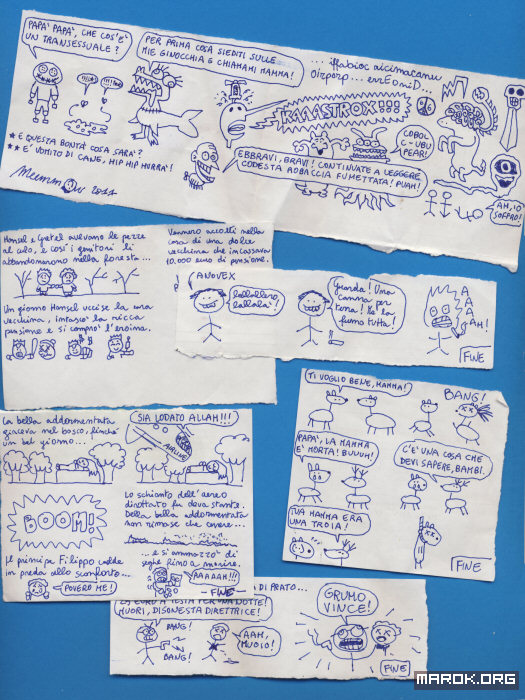 PAPA' PAPA', CHE COS'E'
UN TRANSESSUALE?
PER PRIMA COSA SIEDITI SULLE
MIE GINOCCHIA E CHIAMAMI MAMMA!
KAAASTROX!!!
COBOL
C-UBU
APEAR!
* E QUESTA BONTÀ COSA SARA'?
** E' VOMITO DI CANE, HIP HIP HURRA'!
2011
EBBRAVI, BRAVI! CONTINUATE A LEGGERE
CODESTA ROBACCIA FUMETTATA! PUAH!
AH, IO
SOFFRO!
Hansel e Gretel avevano le pezze
al culo, e così i genitori li
abbandonarono nella foresta...
Vennero accolti nella
casa di una dolce
vecchina che incassava
10.000 euro di pensione.
Un giorno Hansel uccise la cara
vecchina, intascò la ricca
pensione e si comprò l'eroina.
ANOVEX
lallallero,
lallalà!
Guarda! Una
canna per
terra! Me la
fumo tutta!
A
A
A
AH!
FINE
TI VOGLIO BENE, MAMMA!
BANG!
PAPA', LA MAMMA
E' MORTA! BUUUH!
C'E' UNA COSA CHE
DEVI SAPERE, BAMBI.
TUA MAMMA ERA
UNA TROIA!
FINE
La bella addormentata
giaceva nel bosco, finché
un bel giorno...
SIA LODATO ALLAH!!!
AIRLINE
BOOM!
Lo schianto dell'aereo
dirottato fu devastante.
Della bella addormentata
non rimase che cenere...
Il principe Filippo cadde
in preda allo sconforto...
POVERO ME!
...e si ammazzò di
seghe fino a morire.
AAAAAH!!!
-FINE-
DI PRATO...
EURO A TESTA PER UNA NOTTE!
MUORI, DISONESTA DIRETTRICE!
BANG!
BANG!
AAH,
MUOIO!
GRUMO
VINCE!
FINE
MAROK.ORG